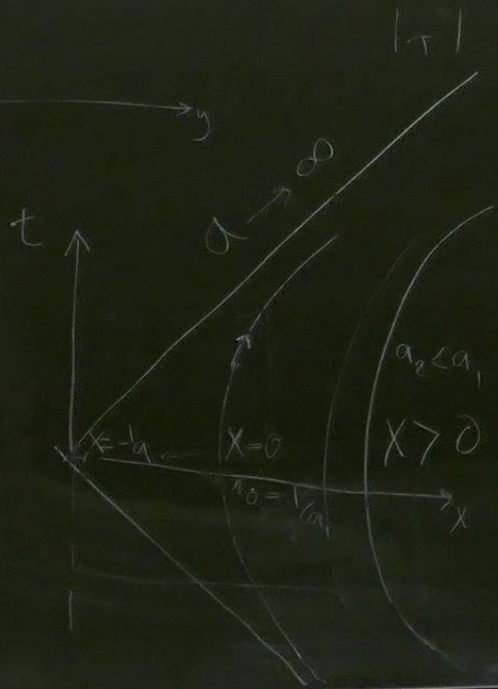 y
a → ∞
t
a₂ < a₁
X = -1/a
X = 0
X > 0
x₀ = 1/a
x